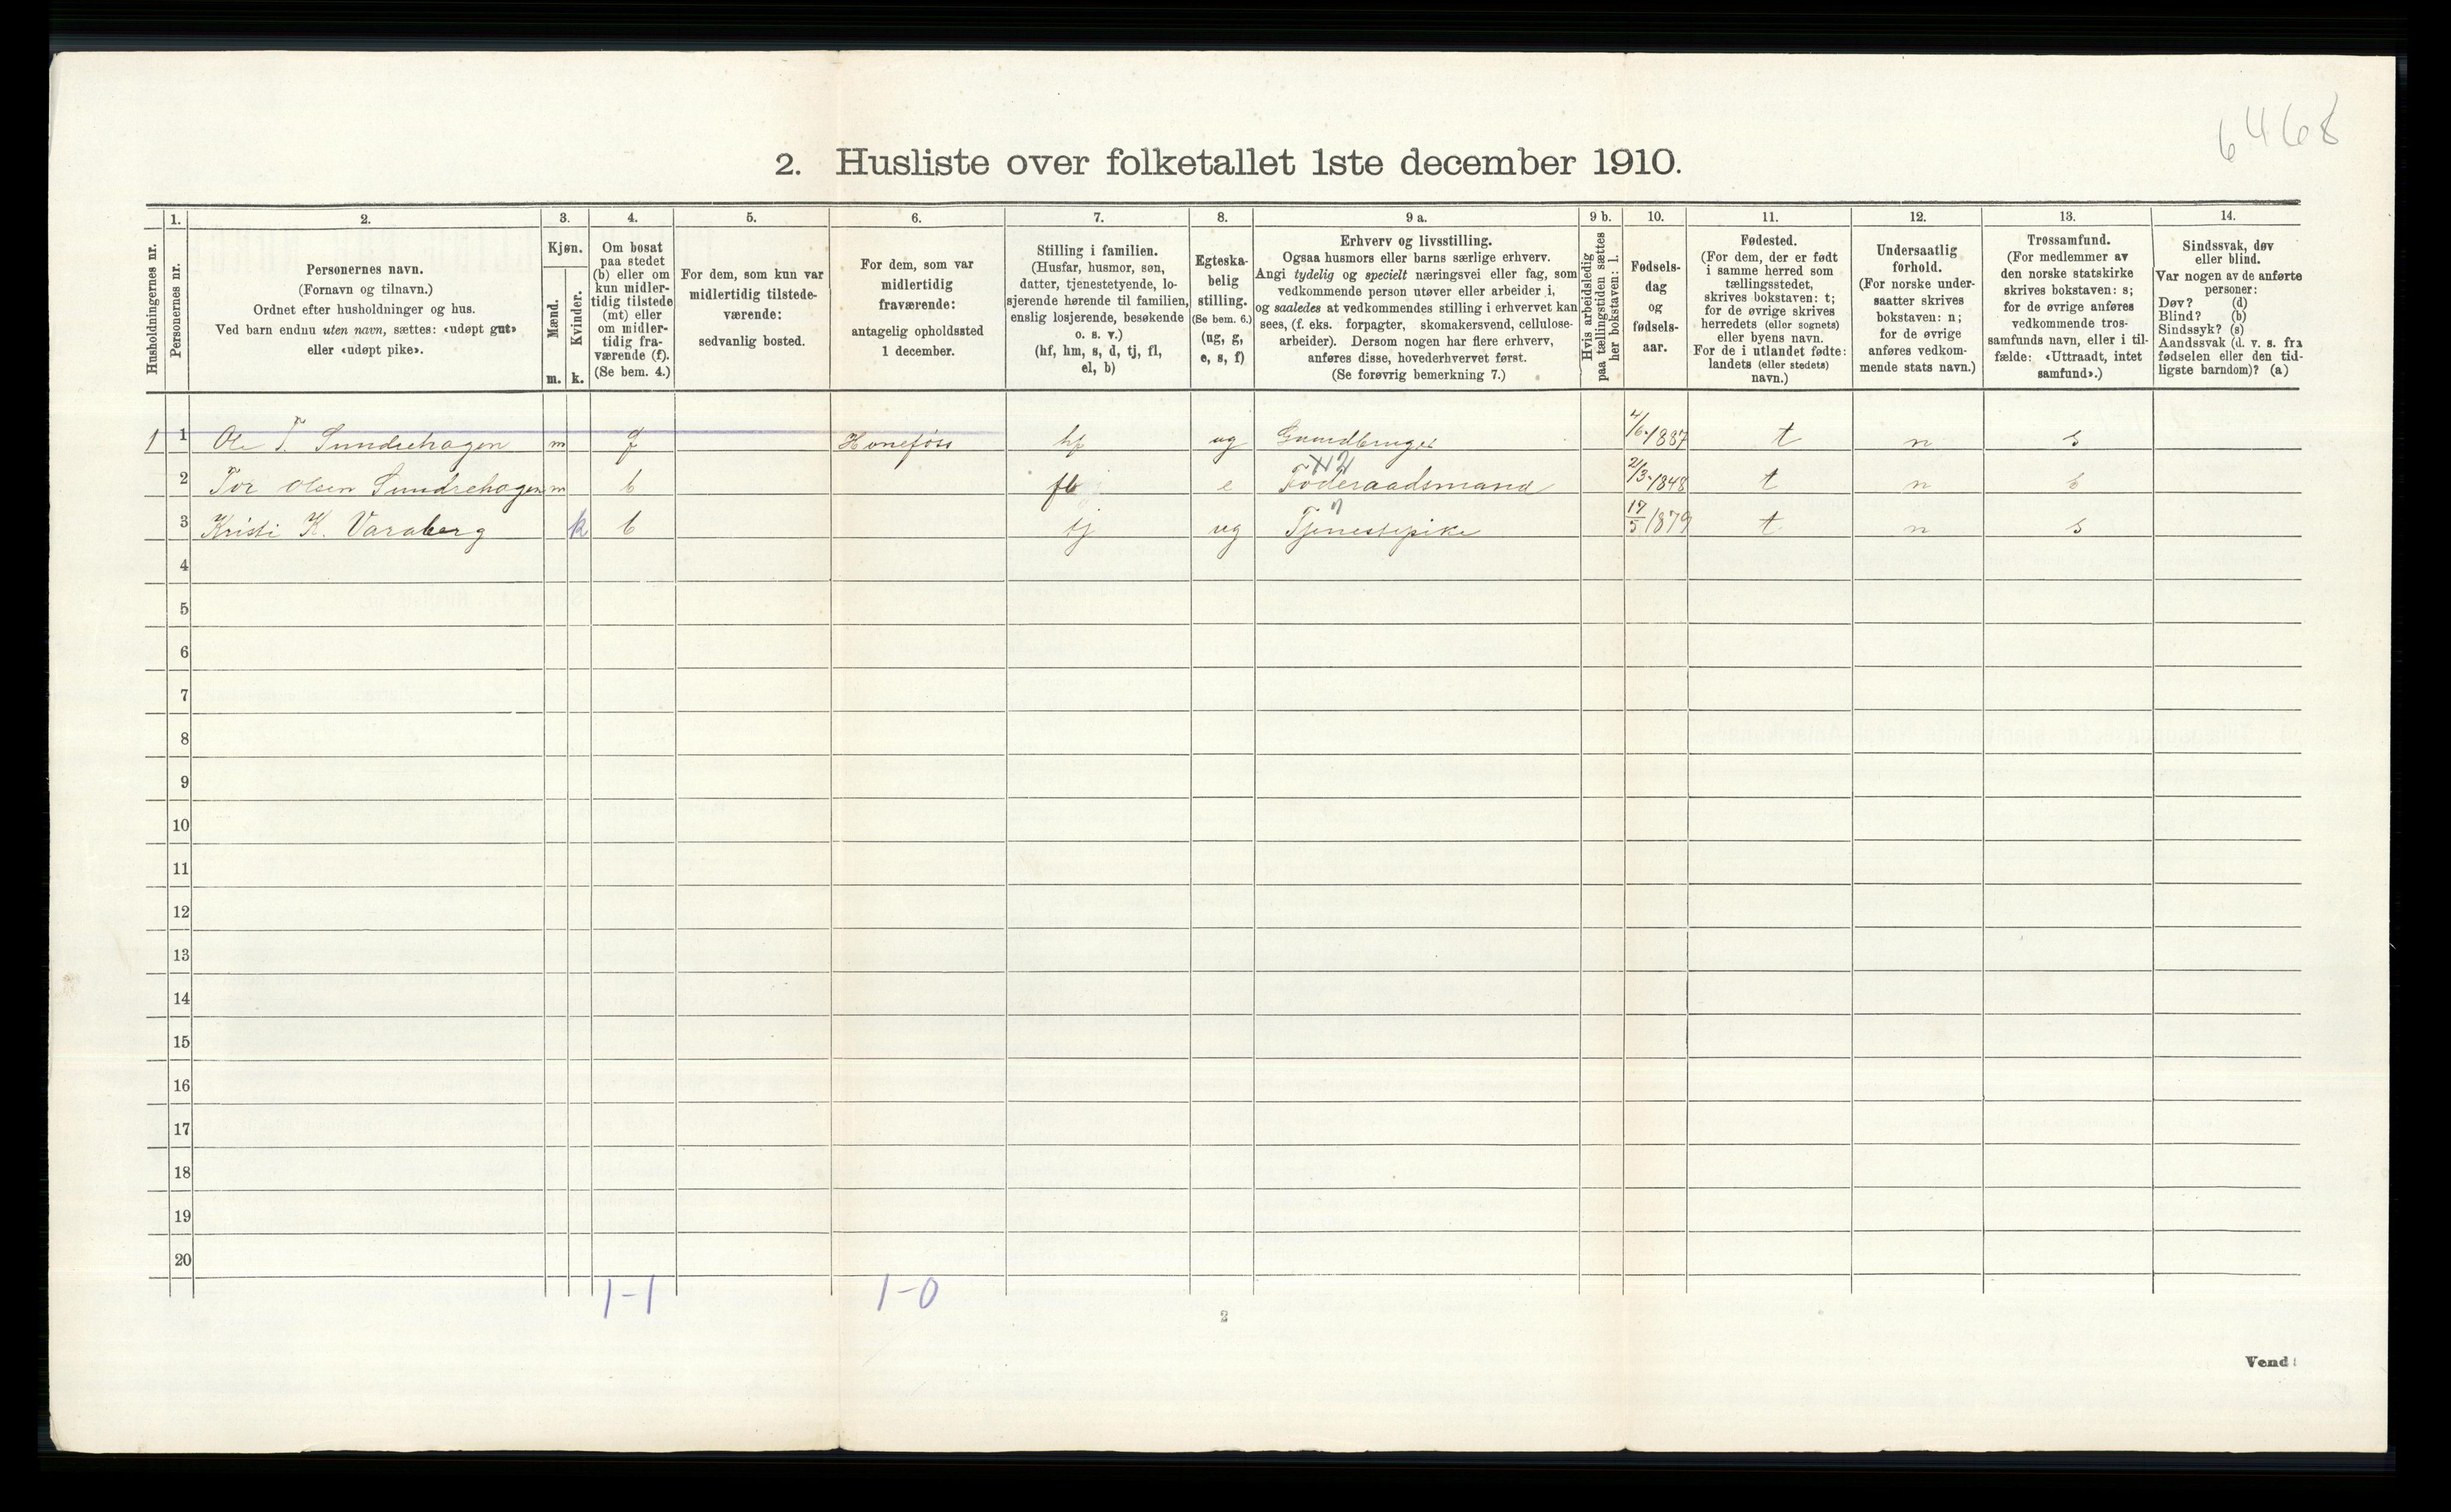 6468
2. Husliste over folketallet 1ste december 1910.
Husholdningernes nr.
1.
Personernes nr.
2.
Personernes navn.
(Fornavn og tilnavn.)
Ordnet efter husholdninger og hus.
Ved barn endnu uten navn, sættes: «udøpt gut»
eller «udøpt pike».
3.
Kjøn.
Mænd.
Kvinder.
m. k.
4.
Om bosat
paa stedet
(b) eller om
kun midler-
tidig tilstede
(mt) eller
om midler-
tidig fra-
værende (f).
(Se bem. 4.)
5.
For dem, som kun var
midlertidig tilstede-
værende:
sedvanlig bosted.
6.
For dem, som var
midlertidig
fraværende:
antagelig opholdssted
1 december.
7.
Stilling i familien.
(Husfar, husmor, søn,
datter, tjenestetyende, lo-
sjerende hørende til familien,
enslig losjerende, besøkende
o. s. v.)
(hf, hm, s, d, tj, fl,
el, b)
8.
Egteska-
belig
stilling.
(Se bem. 6.)
(ug, g,
e, s, f)
9 a.
Erhverv og livsstilling.
Ogsaa husmors eller barns særlige erhverv.
Angi tydelig og specielt næringsvei eller fag, som
vedkommende person utøver eller arbeider i,
og saaledes at vedkommendes stilling i erhvervet kan
sees, (f. eks. forpagter, skomakersvend, cellulose-
arbeider). Dersom nogen har flere erhverv,
anføres disse, hovederhvervet først.
(Se forøvrig bemerkning 7.)
9 b.
Hvis arbeidsledig
paa tællingstiden sættes
her bokstaven: l.
10.
Fødsels-
dag
og
fødsels-
aar.
11.
Fødested.
(For dem, der er født
i samme herred som
tællingsstedet,
skrives bokstaven: t;
for de øvrige skrives
herredets (eller sognets)
eller byens navn.
For de i utlandet fødte:
landets (eller stedets)
navn.)
12.
Undersaatlig
forhold.
(For norske under-
saatter skrives
bokstaven: n;
for de øvrige
anføres vedkom-
mende stats navn.)
13.
Trossamfund.
(For medlemmer av
den norske statskirke
skrives bokstaven: s;
for de øvrige anføres
vedkommende tros-
samfunds navn, eller i til-
fælde: «Uttraadt, intet
samfund».)
14.
Sindssvak, døv
eller blind.
Var nogen av de anførte
personer:
Døv? (d)
Blind? (b)
Sindssyk? (s)
Aandssvak (d. v. s. fra
fødselen eller den tid-
ligste barndom)? (a)
1 1 Ole T. Sundrehagen m f Hønefoss hf ug Gaardbruger 4/6.1887 t n s
2 Tor Olsen Sundrehagen m b fl e Føderaadsmand 2/3.1848 t n s
3 Kristi K. Varaberg k b tj ug Tjenestepike 17/5 1879 t n s
4
5
6
7
8
9
10
11
12
13
14
15
16
17
18
19
20
1-1 1-0
2
Vend!